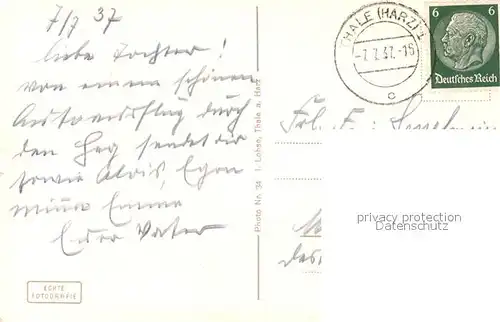 7/7 37
liebe Tochter!
von einem schönen
Autoausflug durch
den Harz sendet dir
sowie Alois, Egon
Emma
Euer Vater
ECHTE
FOTOGRAFIE
Photo Nr. 34 I. Lohse, Thale a. Harz
THALE (HARZ) 1
-7.7.37.-16
c
6 6
Deutsches Reich
privacy protection
Datenschutz